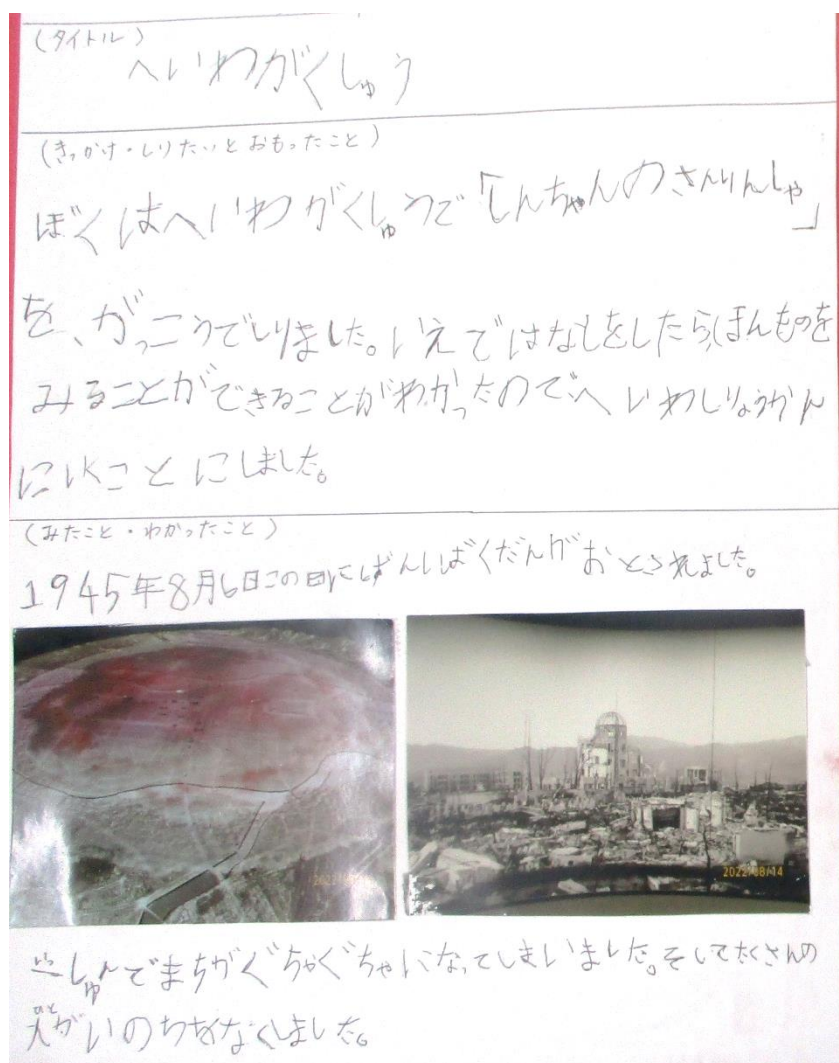 (タイトル)
へいわがくしゅう
(きっかけ・しりたいとおもったこと)
ぼくはへいわがくしゅうで「しんちゃんのさんりんしゃ」
を、がっこうでしりました。いえではなしをしたら、ほんものを
みることができることがわかったので、へいわしりょうかん
にいくことにしました。
(みたこと・わかったこと)
1945年8月6日この日にげんしばくだんがおとされました。
2022/08/14
一しゅんでまちがぐちゃぐちゃになってしまいました。そしてたくさんの
人がいのちをなくしました。